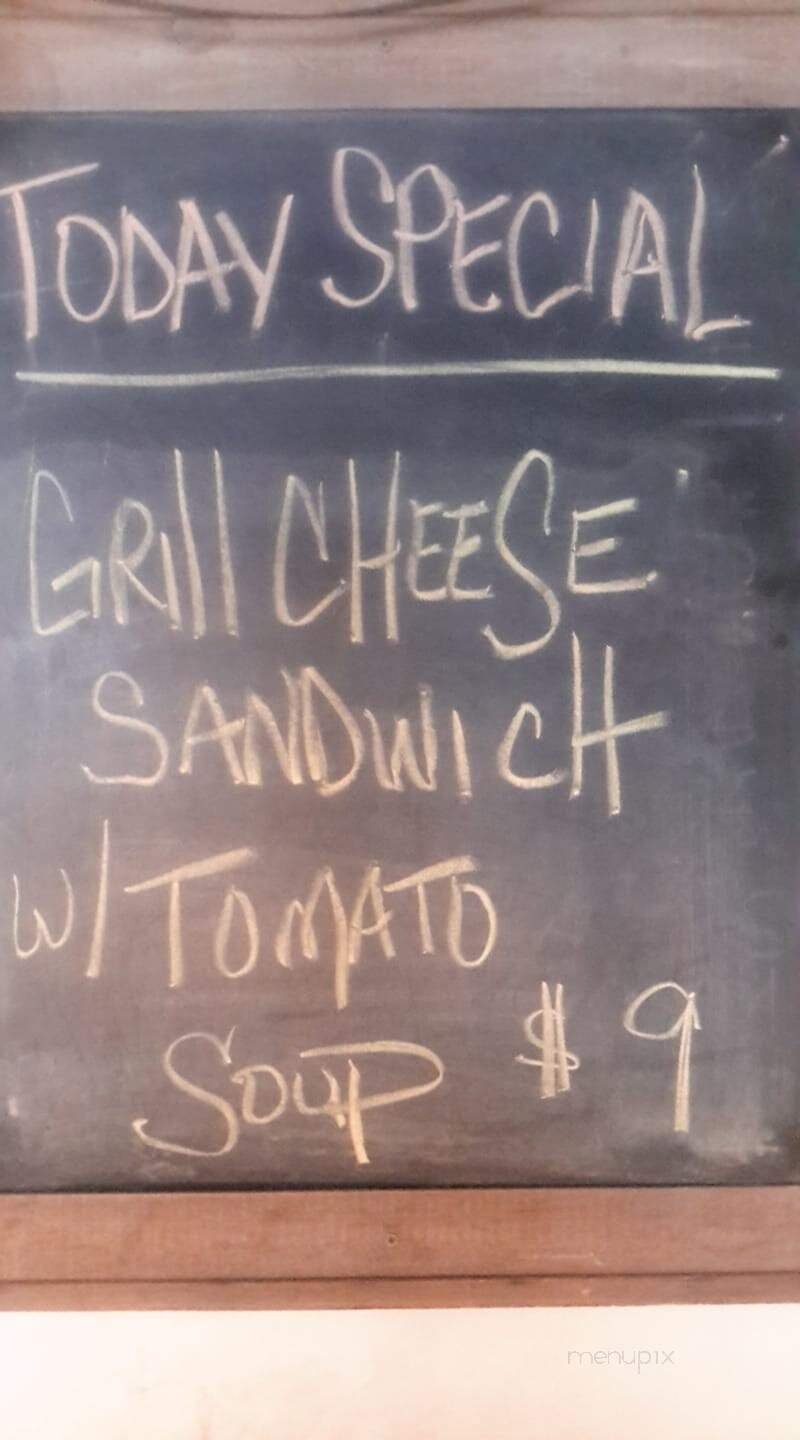 TODAY SPECIAL
GRIll CHEESE
SANDWICH
W/ TOMATO
SOUP $9
menupix